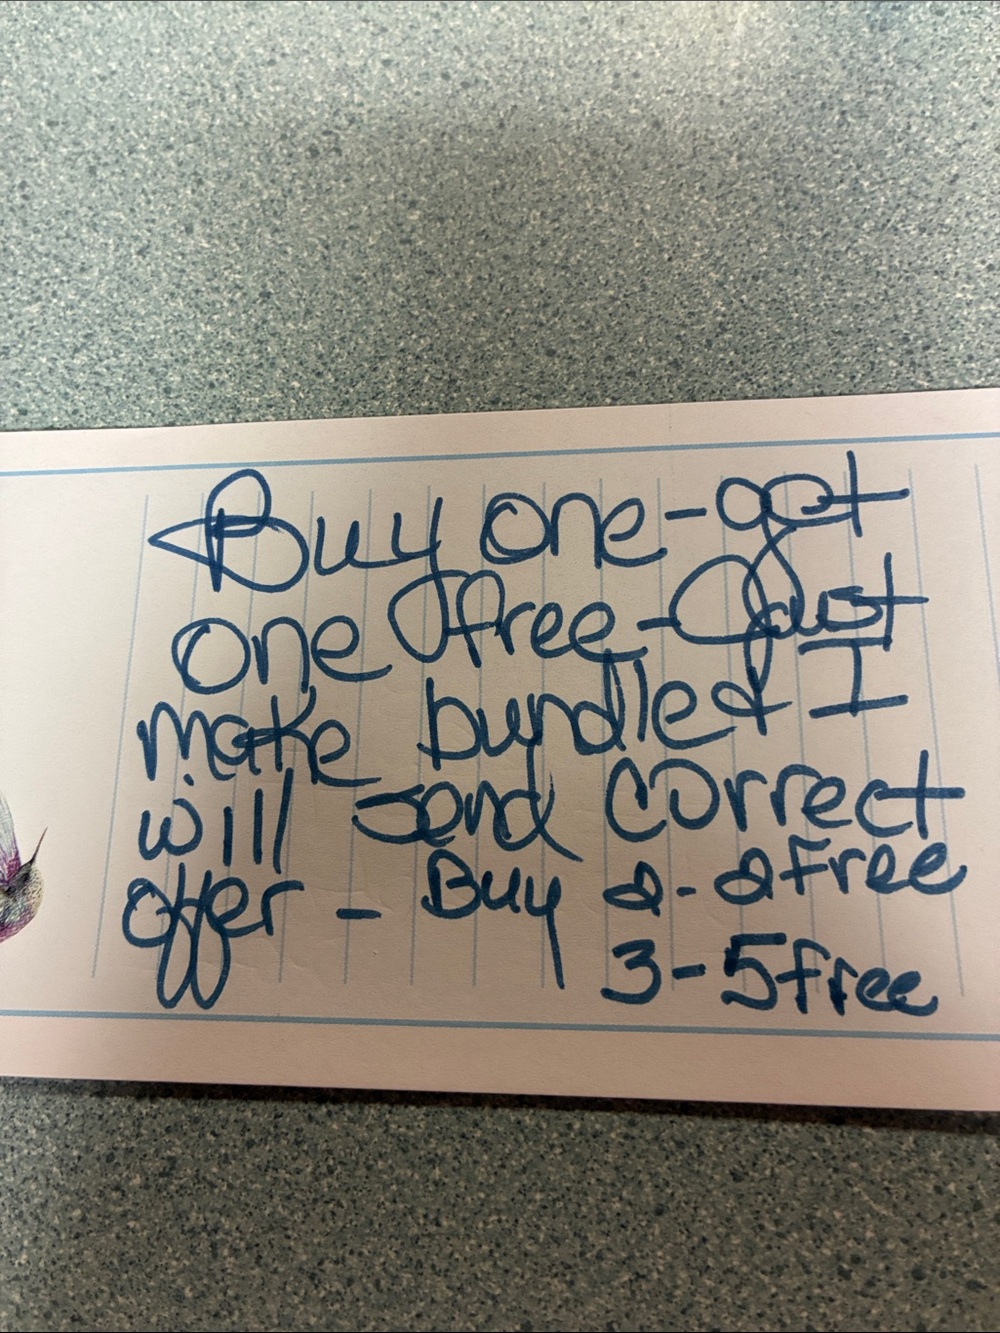 Buy one-get
one free-Just
make bundle & I
will send correct
offer - Buy 2-2 free
3-5 free